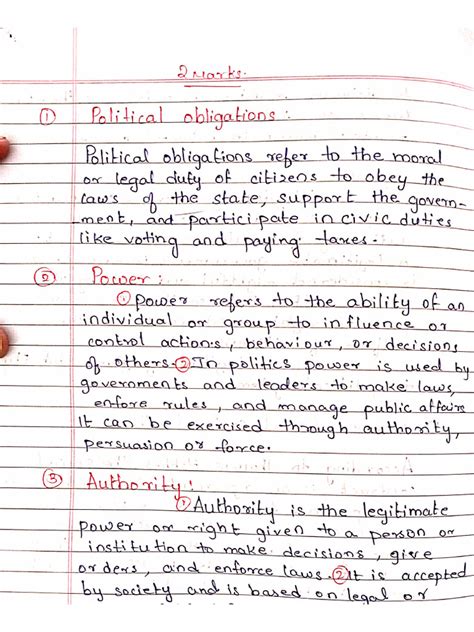 2 Marks.
① Political obligations :
Political obligations refer to the moral
or legal duty of citizens to obey the
laws of the state, support the govern-
ment, and participate in civic duties
like voting and paying taxes.
② Power :
① power refers to the ability of an
individual or group to influence or
control actions, behaviour, or decisions
of others. ② In politics power is used by
governments and leaders to make laws,
enfore rules, and manage public affairs
It can be exercised through authority,
persuasion or force.
③ Authority :
① Authority is the legitimate
power or right given to a person or
institution to make decisions, give
orders, and enforce laws. ② It is accepted
by society and is based on legal or